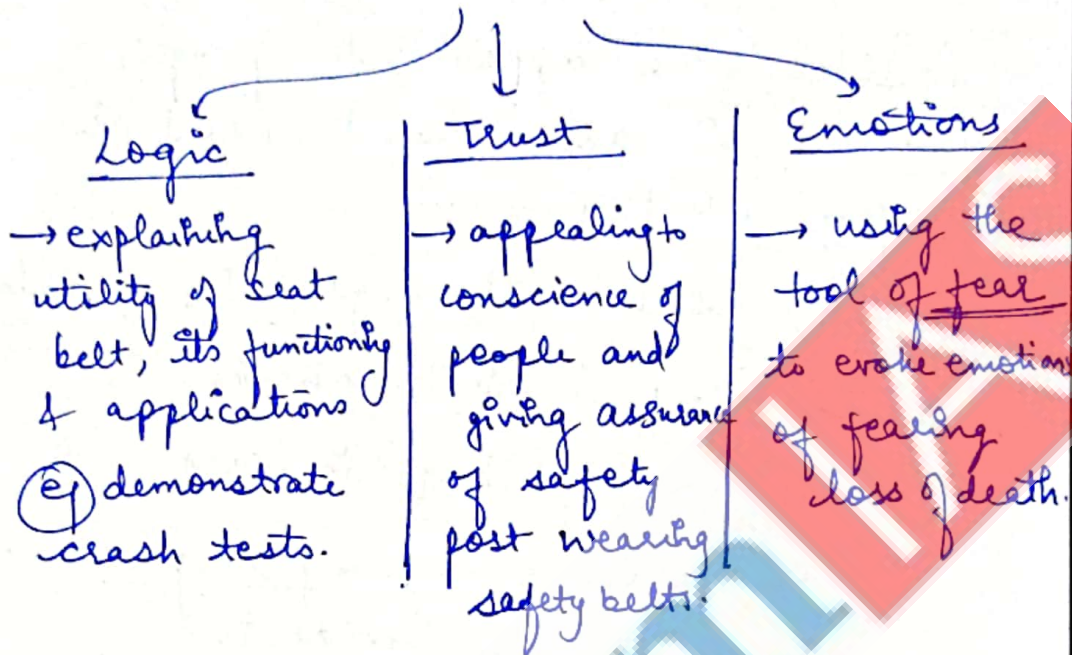 Logic
→ explaining
utility of seat
belt, its functioning
& applications
eg demonstrate
crash tests.
Trust
→ appealing to
conscience of
people and
giving assurance
of safety
post wearing
safety belts.
Emotions
→ using the
tool of fear
to evoke emotions
of fearing
loss of death.
IAS